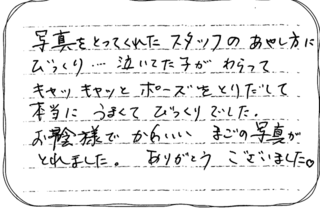 写真をとってくれた スタッフの あやし方に
びっくり…. 泣いてた子が わらって
キャッ キャッと ポーズをとりだして
本当に うまくて びっくりでした。
お陰様で かわいい まごの写真が
とれました。 ありがとう ございました♡